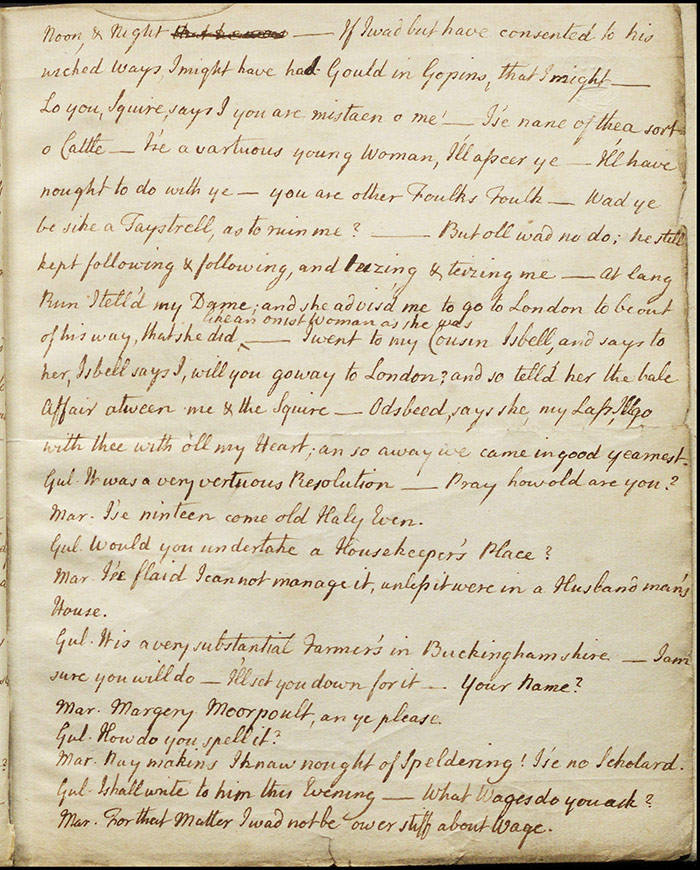 Noon, & Night that he was — If I wad but have consented to his
wicked ways, I might have had Gould in Gopins, that I might —
Lo you, Squire, says I you are mistaen o me! — I'se nane of thea sort
o Cattle — I'se a vartuous young Woman, I'll asseer ye — I'll have
nought to do with ye — you are other Foulks Foulk — Wad ye
be sike a Taystrell, as to ruin me? — But oll wad no do; he still
kept following & following, and teizing & teizing me — At lang
Run I tell'd my Dame; and she advis'd me to go to London to be out
like an onist Woman as she was
of his way, that she did, — I went to my Cousin Isbell, and says to
her, Isbell says I, will you goway to London? and so tell'd her the hale
Affair atween me & the Squire — Odsbeed, says she, my Lass, I'll go
with thee with oll my Heart; an so away we came in good yearnest.
Gul. It was a very vertuous Resolution — Pray how old are you?
Mar. I'se ninteen come old Haly Even.
Gul. Would you undertake a Housekeeper's Place?
Mar. I'se flaid I cannot manage it, unless it were in a Husband man's
House.
Gul. It is a very substantial Farmer's in Buckinghamshire — I am
sure you will do — I'll set you down for it — Your Name?
Mar. Margery Moorpoult, an ye please.
Gul. How do you spell it?
Mar. Nay makins I knaw nought of Speldering! I'se no Scholard.
Gul. I shall write to him this Evening — What Wages do you ask?
Mar. For that Matter I wad not be ower stiff about Wage.